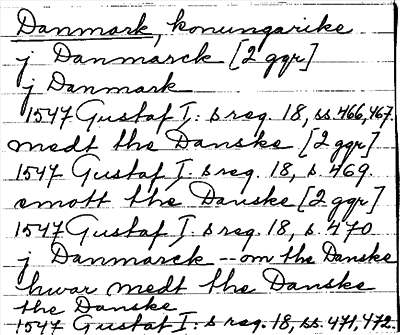 Danmark, konungarike
j Danmarck [2 ggr]
j Danmark
1547 Gustaf I: s reg. 18, ss. 466, 467.
medt the Danske [2 ggr]
1547 Gustaf I: s reg. 18, s. 469.
emott the Danske [2 ggr]
1547 Gustaf I: s reg. 18, s. 470
j Danmarck -- om the Danske
hwar medt the Danske
the Danske
1547 Gustaf I: s reg. 18, ss. 471, 472.